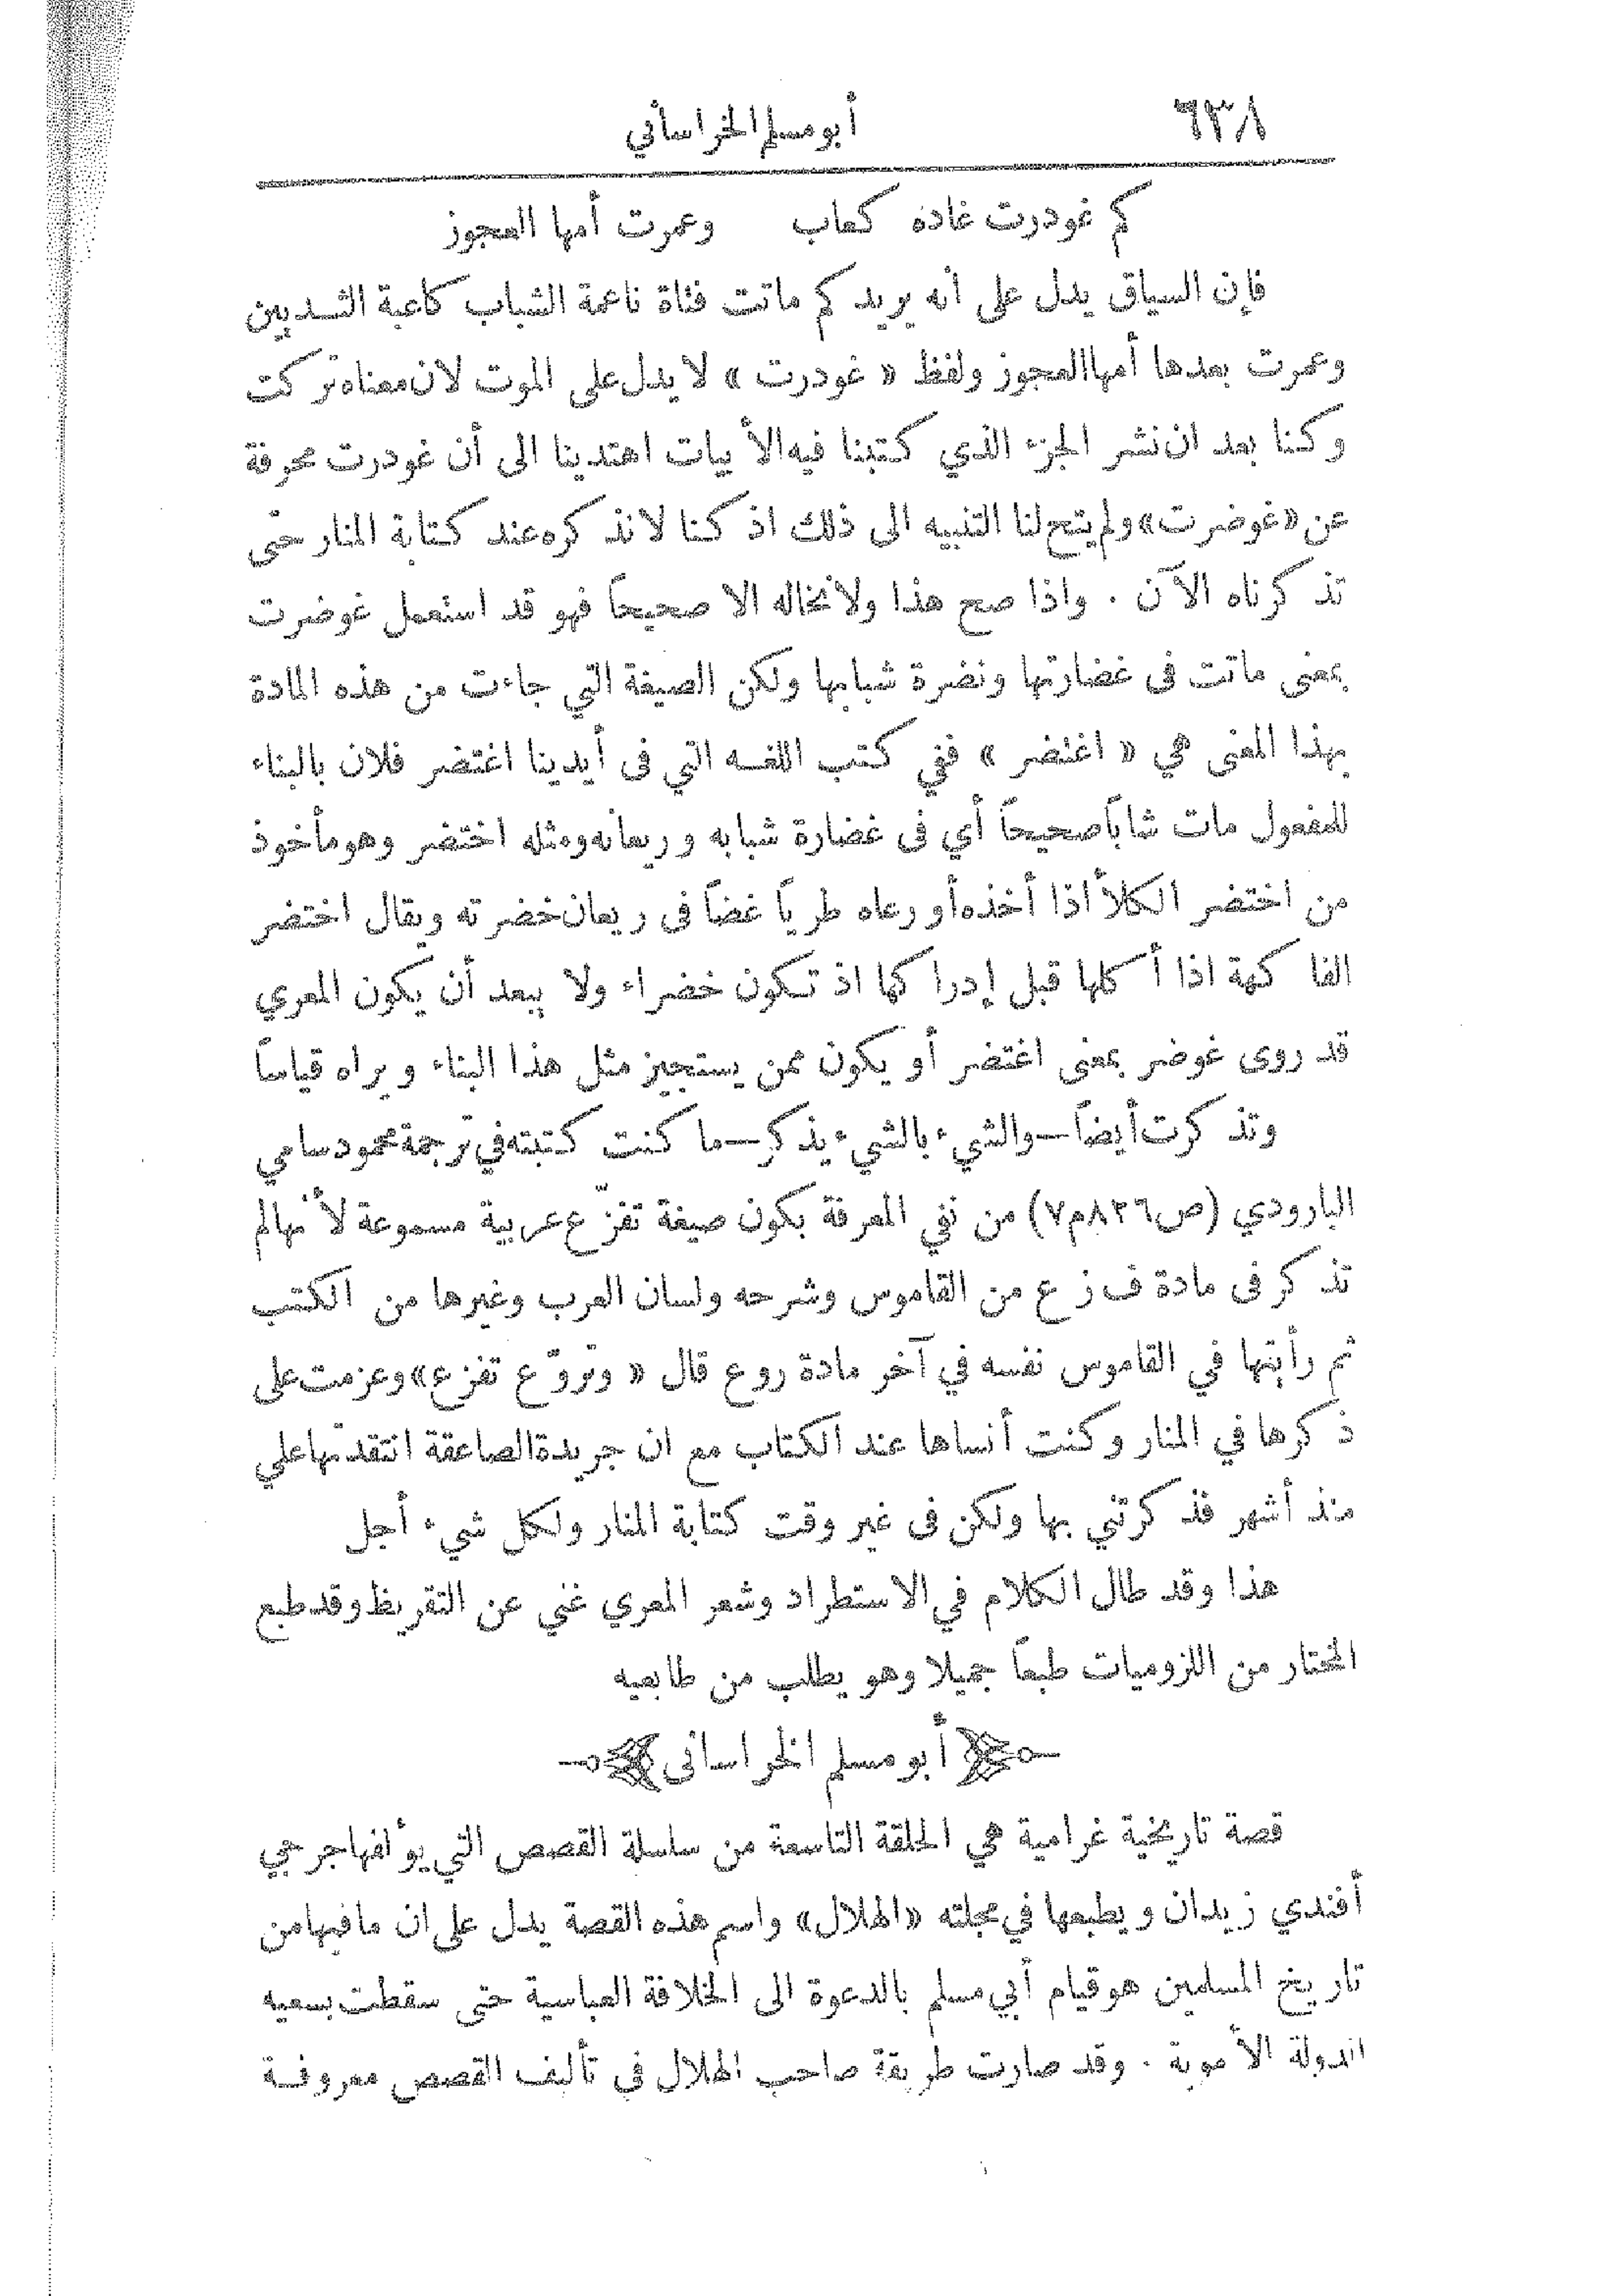 ٦٣٨ أبو مسلم الخراساني
كم غودرت غادة كعاب وعمرت أمها العجوز
فإن السياق يدل على أنه يريد كم ماتت فتاة ناعمة الشباب كاعبة الثديين
وعمرت بعدها أمها العجوز ولفظ « غودرت » لا يدل على الموت لان معناه تركت
وكنا بعد ان نشر الجزء الذي كتبنا فيه الأبيات اهتدينا الى أن غودرت محرفة
عن «غوضرت» ولم يتح لنا التنبيه الى ذلك اذ كنا لا نذكره عند كتابة المنار حتى
تذكرناه الآن . واذا صح هذا ولا نخاله الا صحيحاً فهو قد استعمل غوضرت
بمعنى ماتت فى غضارتها ونضرة شبابها ولكن الصيغة التي جاءت من هذه المادة
بهذا المعنى هي « اغتضر » ففي كتب اللغه التي فى أيدينا اغتضر فلان بالبناء
للمفعول مات شاباً صحيحاً أي فى غضارة شبابه وريعانه ومثله اختضر وهو مأخوذ
من اختضر الكلأ اذا أخذه أو رعاه طرياً غضاً فى ريعان خضرته ويقال اختضر
الفاكهة اذا أكلها قبل إدراكها اذ تكون خضراء ولا يبعد أن يكون المعري
قد روى غوضر بمعنى اغتضر أو يكون ممن يستجيز مثل هذا البناء ويراه قياساً
وتذكرت أيضاً—والشيء بالشيء يذكر—ما كنت كتبته في ترجمة محمود سامي
البارودي (ص٨٢٦م٧) من نفي المعرفة بكون صيغة تفزّع عربية مسموعة لأنها لم
تذكر فى مادة ف ز ع من القاموس وشرحه ولسان العرب وغيرها من الكتب
ثم رأيتها في القاموس نفسه في آخر مادة روع قال « وتروّع تفزع» وعزمت على
ذكرها في المنار وكنت أنساها عند الكتاب مع ان جريدة الصاعقة انتقدتها علي
منذ أشهر فذكرتني بها ولكن فى غير وقت كتابة المنار ولكل شيء أجل
هذا وقد طال الكلام في الاستطراد وشعر المعري غني عن التقريظ وقد طبع
المختار من اللزوميات طبعاً جميلا وهو يطلب من طابعيه
أبو مسلم الخراسانى
قصة تاريخية غرامية هي الحلقة التاسعة من سلسلة القصص التي يؤلفها جرجي
أفندي زيدان ويطبعها في مجلته «الهلال» واسم هذه القصة يدل على ان ما فيها من
تاريخ المسلمين هو قيام أبي مسلم بالدعوة الى الخلافة العباسية حتى سقطت بسعيه
الدولة الأموية . وقد صارت طريقة صاحب الهلال فى تأليف القصص معروفة